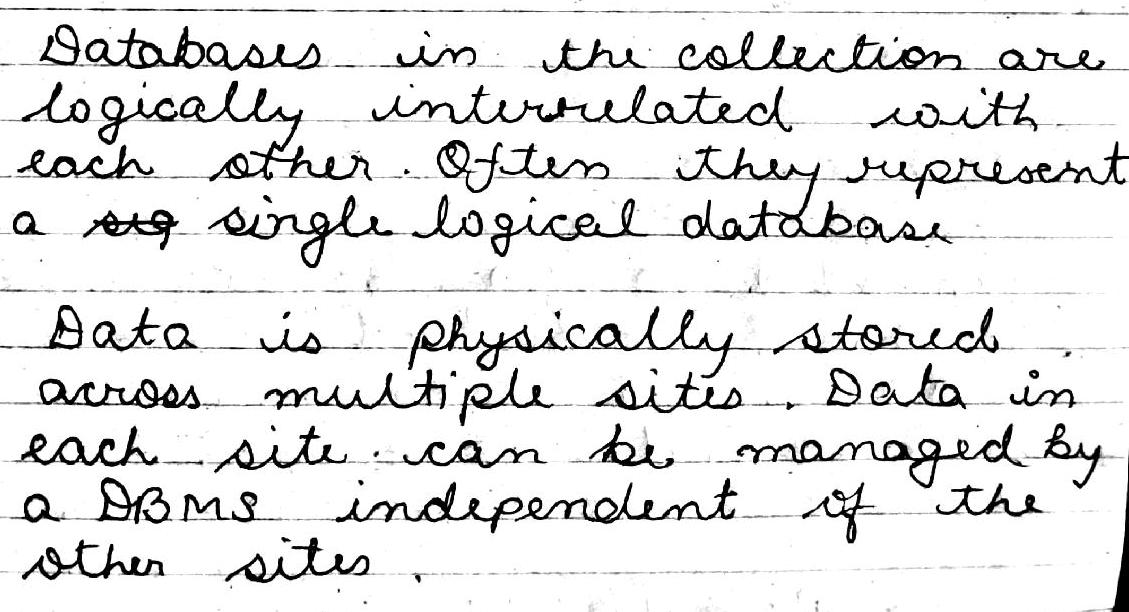 Databases in the collection are
logically interrelated with
each other. Often they represent
a single logical database
Data is physically stored
across multiple sites. Data in
each site can be managed by
a DBMS independent of the
other sites.